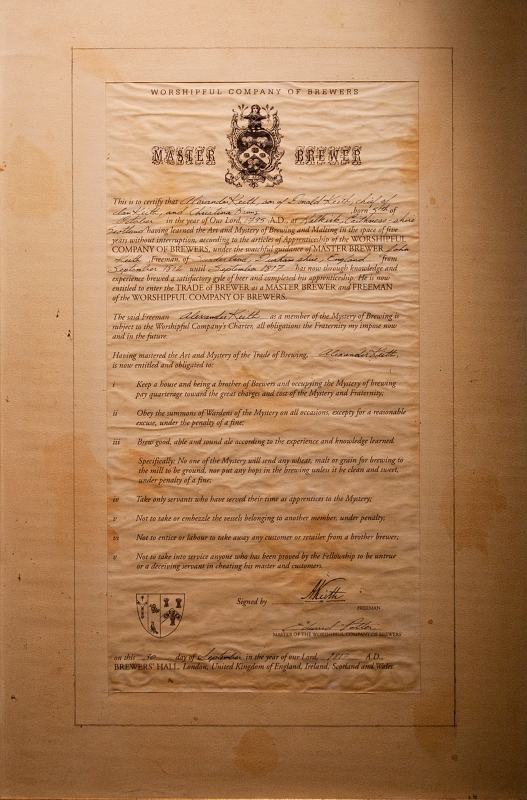 WORSHIPFUL COMPANY OF BREWERS
MASTER BREWER
This is to certify that Alexander Keith, son of Donald Keith, chief of
clan Keith, and Christina Brims born 5th of
October in the year of Our Lord, 1795 A.D., at Halkirk, Caithness-shire
Scotland having learned the Art and Mystery of Brewing and Malting in the space of five
years without interruption, according to the articles of Apprenticeship of the WORSHIPFUL
COMPANY OF BREWERS, under the watchful guidance of MASTER BREWER John
Keith Freeman of Sunderland, Durham-shire, England from
September 1812 until September 1817 has now through knowledge and
experience brewed a satisfactory gyle of beer and completed his apprenticeship. He is now
entitled to enter the TRADE OF BREWER as a MASTER BREWER and FREEMAN
of the WORSHIPFUL COMPANY OF BREWERS.
The said Freeman Alexander Keith as a member of the Mystery of Brewing is
subject to the Worshipful Company's Charter, all obligations the Fraternity my impose now
and in the future.
Having mastered the Art and Mystery of the Trade of Brewing, Alexander Keith,
is now entitled and obligated to:
i Keep a house and being a brother of Brewers and occupying the Mystery of brewing
pay quarterage toward the great charges and cost of the Mystery and Fraternity;
ii Obey the summons of Wardens of the Mystery on all occasions, excepty for a reasonable
excuse, under the penalty of a fine;
iii Brew good, able and sound ale according to the experience and knowledge learned.
Specifically: No one of the Mystery will send any wheat, malt or grain for brewing to
the mill to be ground, nor put any hops in the brewing unless it be clean and sweet,
under penalty of a fine;
iv Take only servants who have served their time as apprentices to the Mystery;
v Not to take or embezzle the vessels belonging to another member, under penalty;
vi Not to entice or labour to take away any customer or retailer from a brother brewer;
v Not to take into service anyone who has been proved by the Fellowship to be untrue
or a deceiving servant in cheating his master and customers.
Signed by AKeith
FREEMAN
Edward Potter
MASTER OF THE WORSHIPFUL COMPANY OF BREWERS
on this 30 day of September in the year of our Lord, 1817 A.D.,
BREWERS' HALL, London, United Kingdom of England, Ireland, Scotland and Wales.